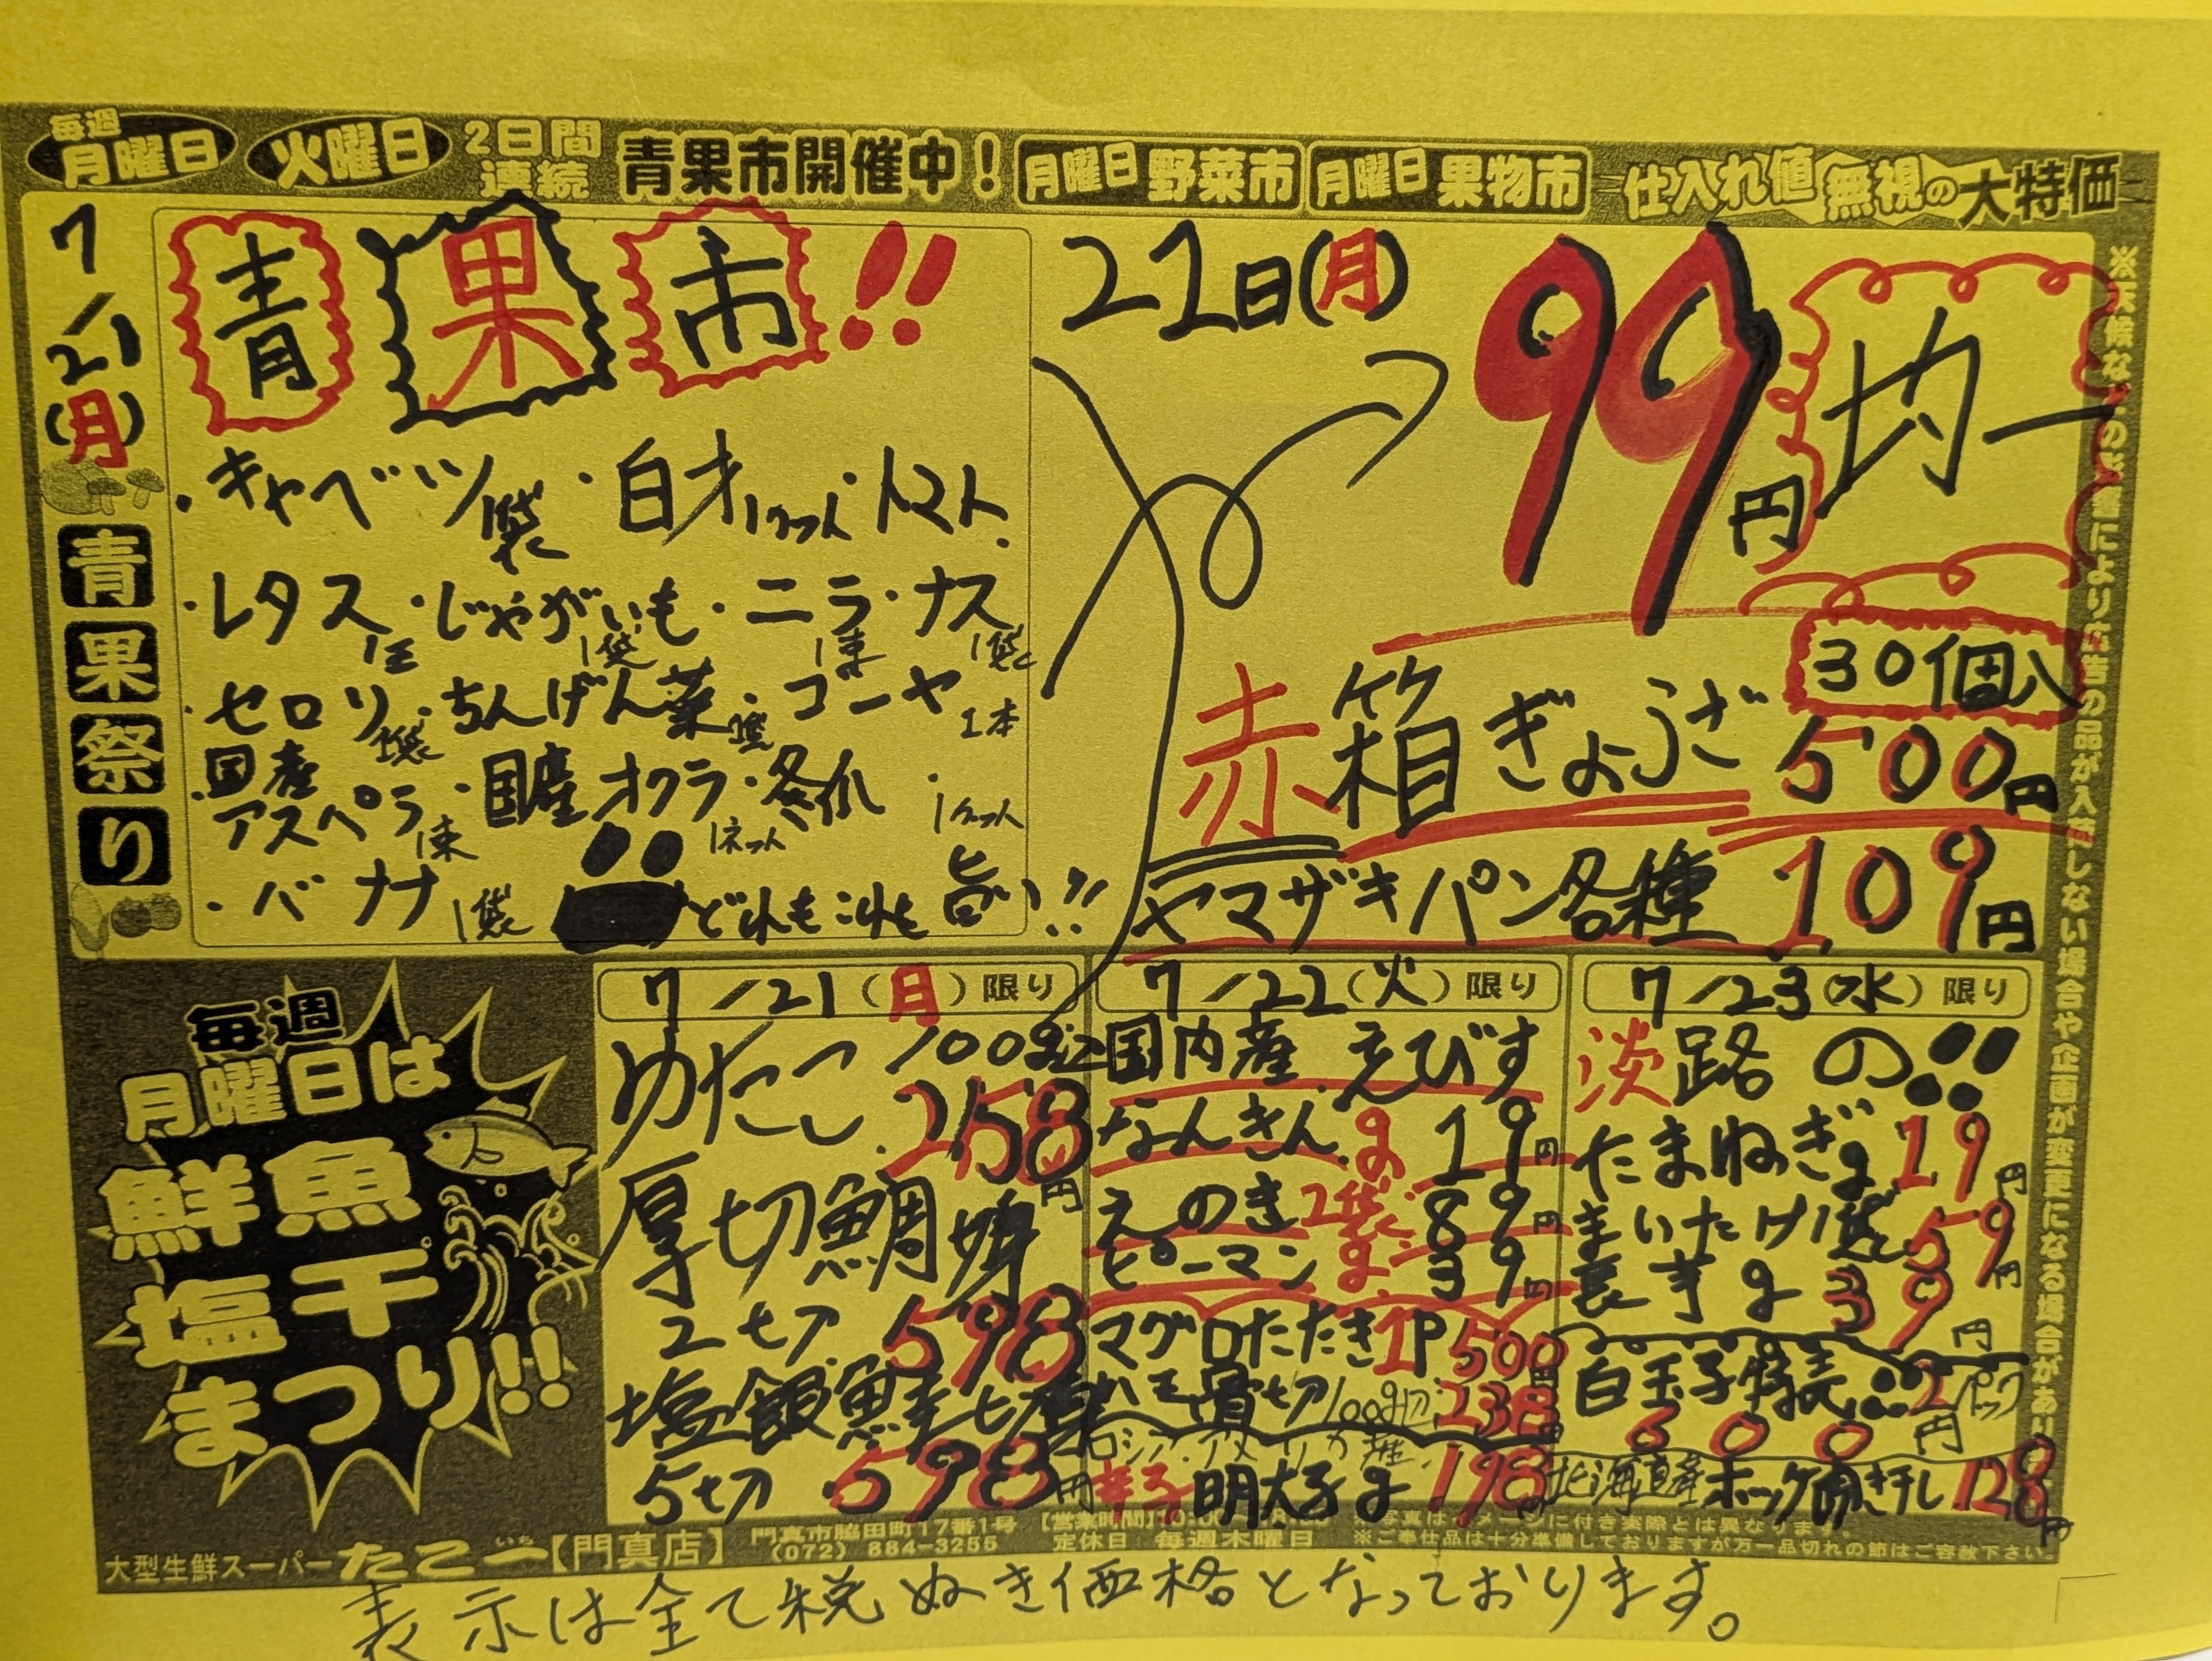 毎週 月曜日 火曜日 2日間連続 青果市開催中! 月曜日 野菜市 月曜日 果物市 仕入れ値無視の大特価
7/21(月)
青果祭り
青果市!!
・キャベツ 1袋 ・白才 1ケット ・トマト
・レタス 1玉 ・じゃがいも 1袋 ・ニラ 1束 ・ナス 1袋
・セロリ 1袋 ・ちんげん菜 1袋 ・ゴーヤ 1本
・国産アスペラ 1束 ・国産オクラ 1ネット ・冬瓜 1ケット
・バナナ 1袋 どれもこれも旨い!!
21日(月)
99円均一
赤箱ぎょうざ 30個入 500円
ヤマザキパン各種 109円
毎週
月曜日は
鮮魚
塩干
まつり!!
7/21(月)限り
ゆたこ 100g込
258円
厚切鯛
2切 598
塩銀鮭切
5切 598円
7/22(火)限り
国内産えびす
なんきん 19円
えのき 2袋 89円
ピーマン 39円
マグロたたき 1P 500円
ハモ骨切 100g込 238円
ロシア・アメリカ産
辛子明太子 198円
7/23(水)限り
淡路の!!
たまねぎ 19円
まいたけ 1袋 59円
長芋 39円
白玉子 2パック
600円
北海道産ホッケ開き干し 128円
大型生鮮スーパー たこ一【門真店】
いち
門真市脇田町17番1号
(072) 884-3255
【営業時間】
定休日 毎週木曜日
※ご奉仕品は十分準備しておりますが万一品切れの節はご容赦下さい。
表示は全て税ぬき価格となっております。